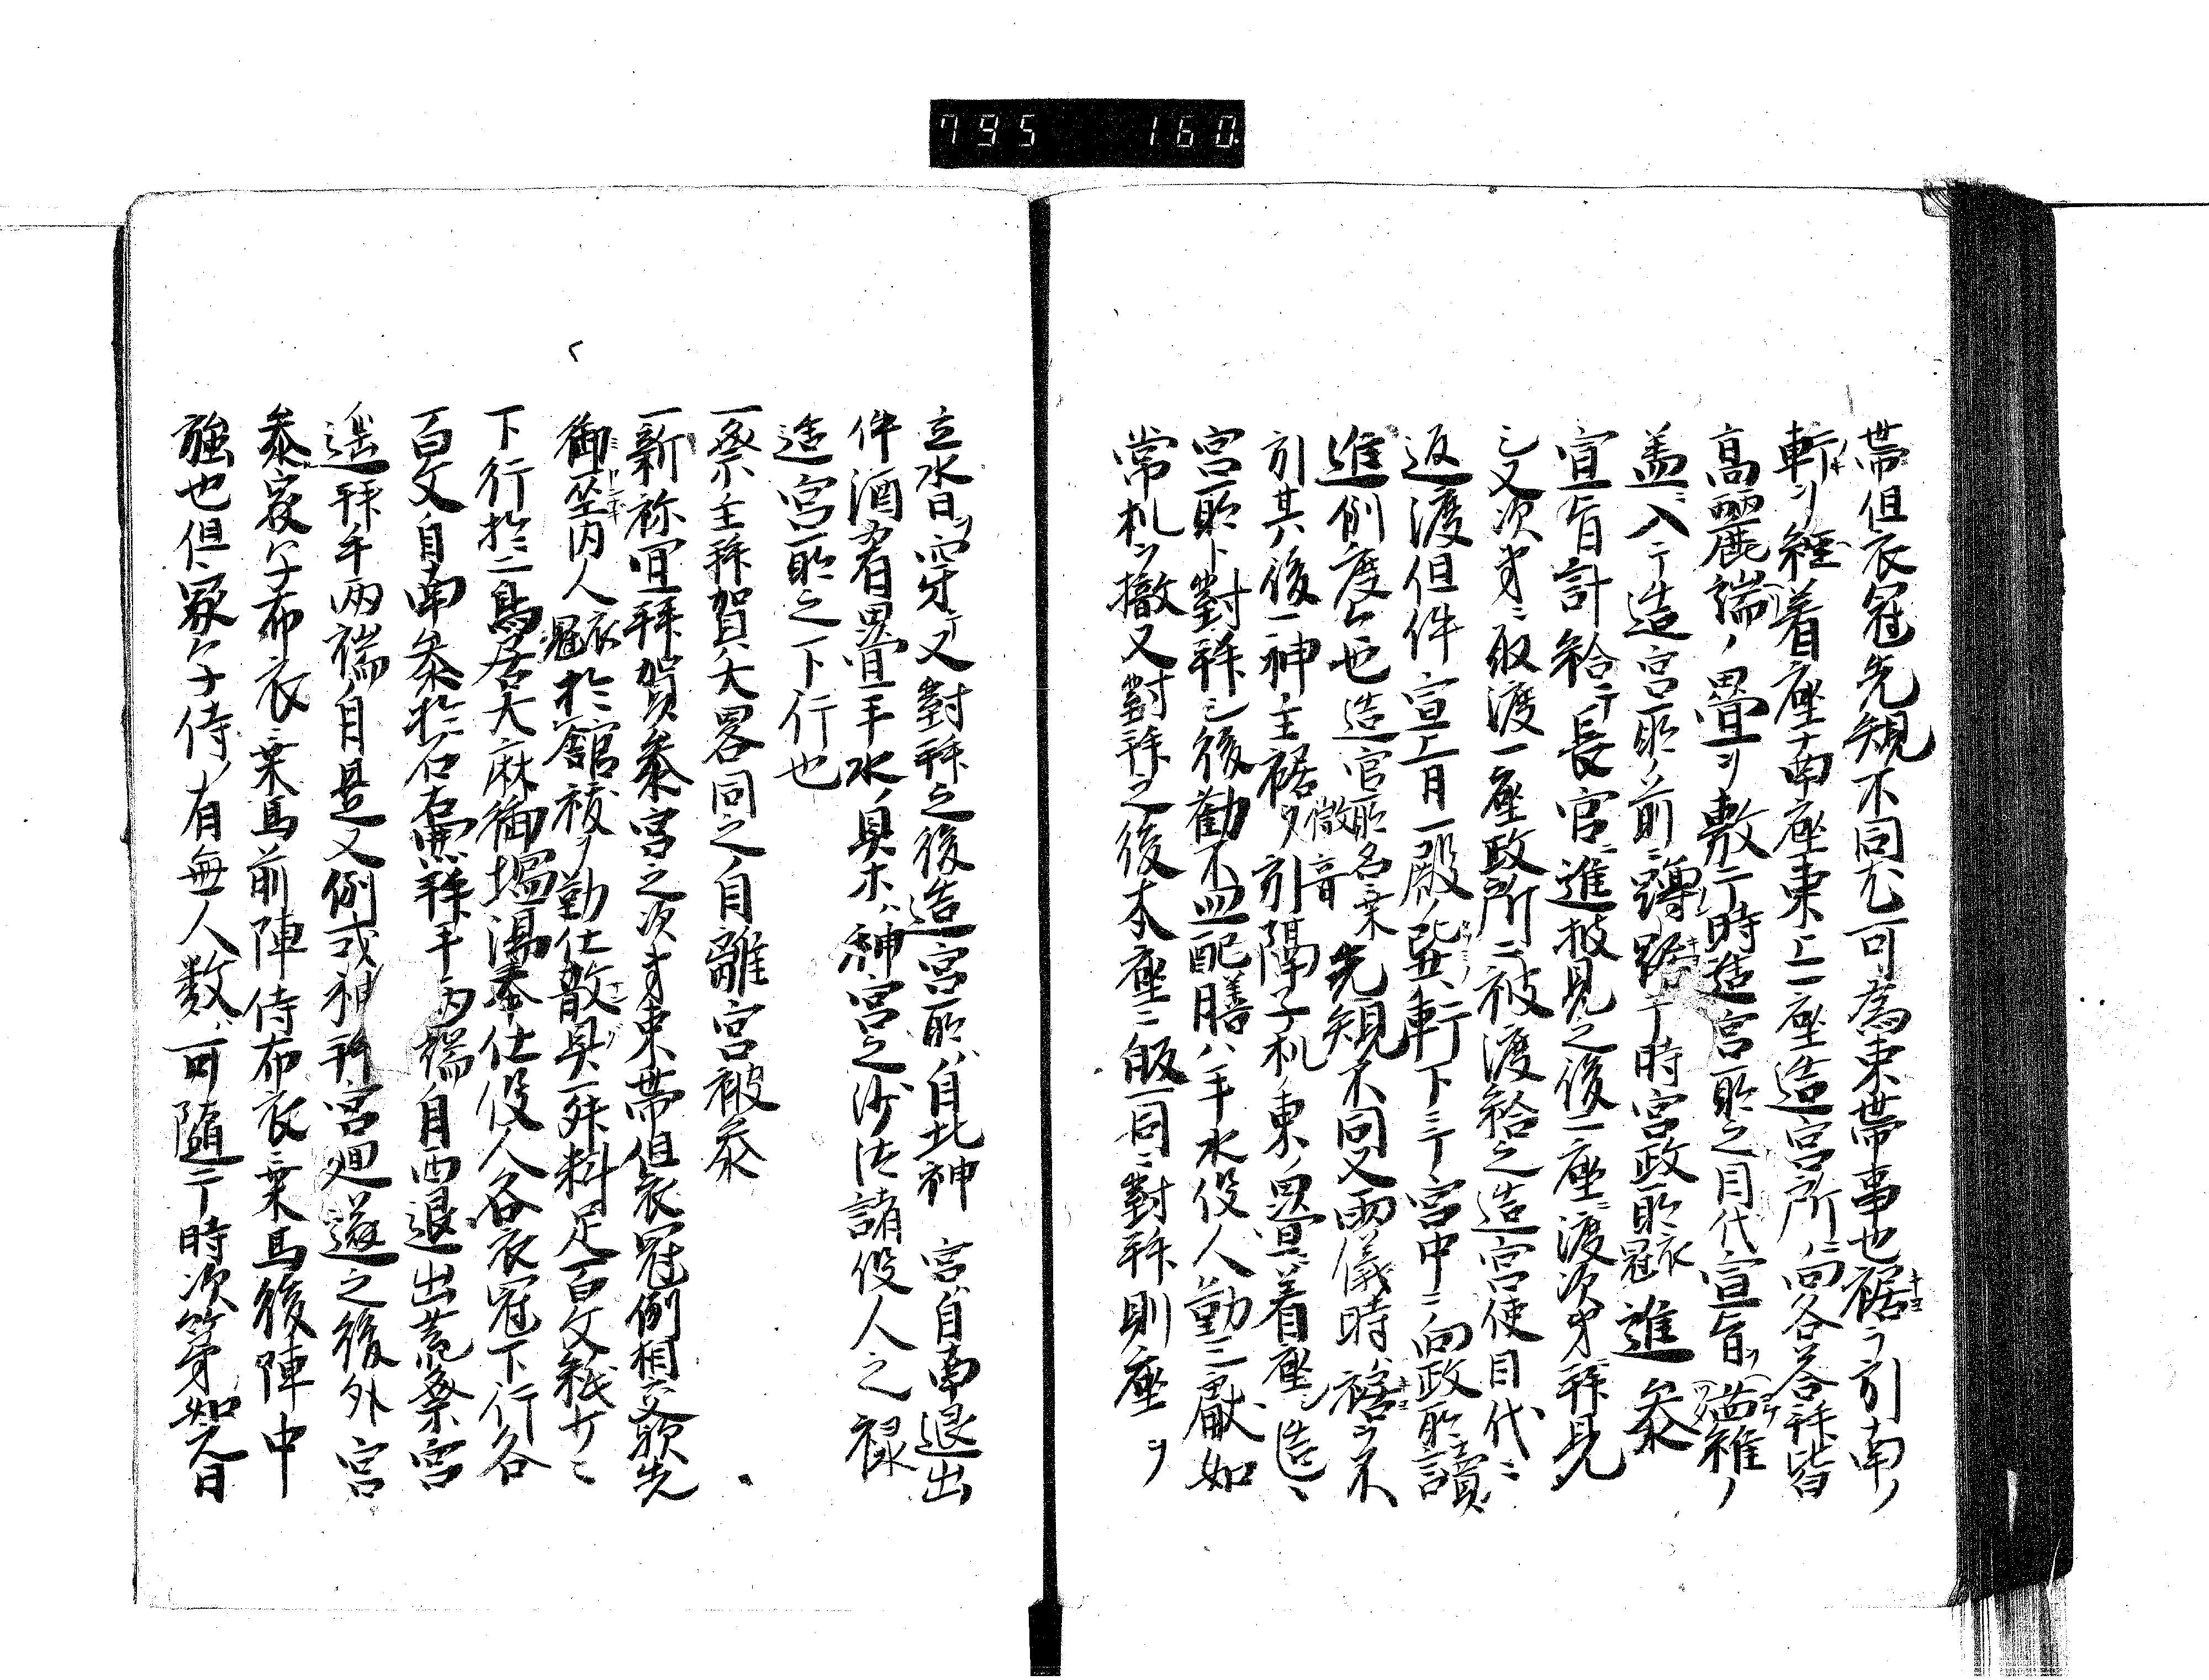 795 160
帯但衣冠先規不同尤可為束帯事也裾ヲ引南ノ
軒ヲ経着座南座東上一座造宮所ニ向各答拝皆
高麗端ノ畳ヲ敷于時造宮所之目代宣旨ヲ 筥ノ
盖ニ入テ造宮所ノ前ニ蹲踞于時宮政所衣冠進参
宣旨計給テ長官ニ進披見之後一座ニ渡次第拝見
シ又次第ニ取渡一座政所ニ被渡給之造宮使目代ニ
返渡但件宣旨一殿巽ノ軒下ニテ宮中ニ向政所読
進例度々也造宮所名乗微音先規不同又雨儀時ハ裾ヲ不
引其後一神主裾ヲ引隔子机東ノ畳ニ着座シ造
宮所ト対拝シ後勧盃配膳ハ手水役人勤三献如
常机ヲ撤又対拝之後本座ニ皈同ニ対拝則座ヲ
立沓ヲ穿テ又対拝之後造宮所ハ自北神宮ハ自南退出
件酒肴畳手水ノ具等ハ神宮之沙汰諸役人之禄
造宮所之下行也
一祭主拝賀ハ大略同之自離宮被参
一新祢宜拝賀参宮之次第束帯但衣冠例相交歟先
御塩内人衣冠於館祓ヲ勤仕散具一殊料足百文紙
下行於二鳥居大麻御塩湯奉仕役人各衣冠下行各
百文自南参於石壺拝手両端自西退出荒祭宮
遥拝手両端自是又例式神拝宮廻遂之後外宮
参家子布衣乗馬前陣侍布衣乗馬後陣中
強也但家子侍有無人数可随于時次第如今日